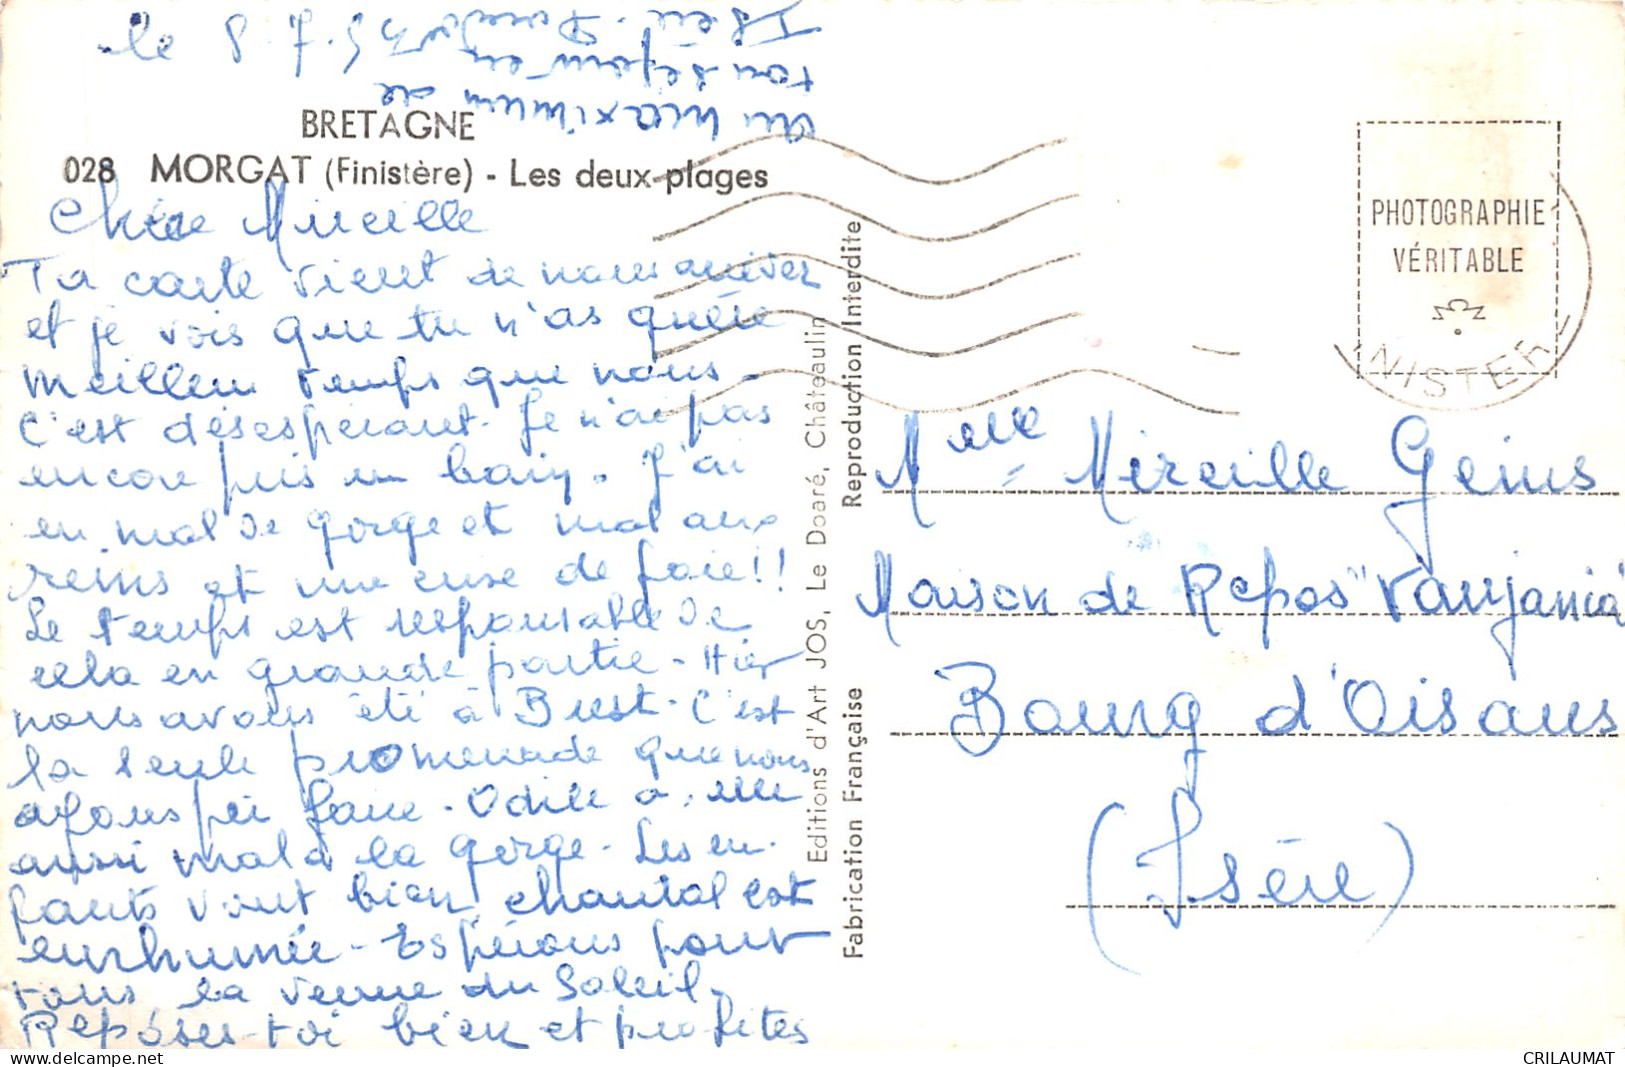 BRETAGNE
028 MORGAT (Finistère) - Les deux plages
Chère Mireille
Ta carte vient de nous arriver
et je vois que tu n'as guère
meilleur temps que nous.
C'est désespérant. Je n'ai pas
encore pris un bain. J'ai
eu mal de gorge et mal aux
reins et une crise de foie!!
Le temps est responsable de
cela en grande partie - Hier
nous avons été à Brest. C'est
la seule promenade que nous
ayons pu faire. Odile a elle
aussi mal à la gorge. Les en-
fants vont bien, Chantal est
enrhumée - Espérons pour
tous la venue du Soleil.
Repose-toi bien et profites
au maximum de
ton séjour en
le 8.7.
Editions d'Art JOS, Le Doaré, Châteaulin
Fabrication Française Reproduction Interdite
PHOTOGRAPHIE
VÉRITABLE
NISTER
Melle Mireille Genis
Maison de Repos "Vaujania"
Bourg d'Oisans
(Isère)
CRILAUMAT